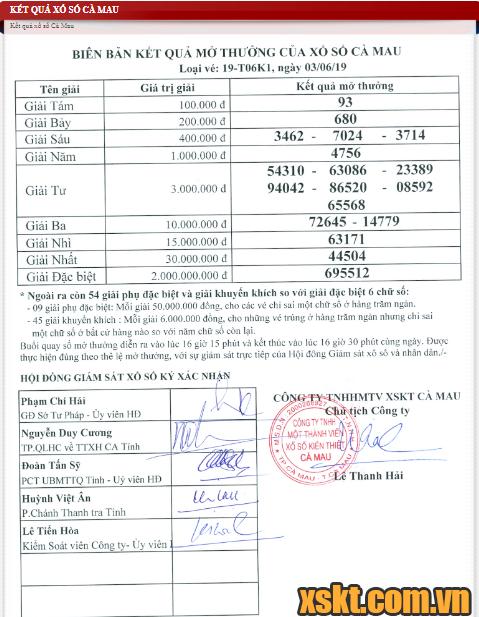 KẾT QUẢ XỔ SỐ CÀ MAU
Kết quả xổ số Cà Mau
BIÊN BẢN KẾT QUẢ MỞ THƯỞNG CỦA XỔ SỐ CÀ MAU
Loại vé: 19-T06K1, ngày 03/06/19
Tên giải Giá trị giải Kết quả mở thưởng
Giải Tám 100.000 đ 93
Giải Bảy 200.000 đ 680
Giải Sáu 400.000 đ 3462 - 7024 - 3714
Giải Năm 1.000.000 đ 4756
Giải Tư 3.000.000 đ 54310 - 63086 - 23389
94042 - 86520 - 08592
65568
Giải Ba 10.000.000 đ 72645 - 14779
Giải Nhì 15.000.000 đ 63171
Giải Nhất 30.000.000 đ 44504
Giải Đặc biệt 2.000.000.000 đ 695512
* Ngoài ra còn 54 giải phụ đặc biệt và giải khuyến khích so với giải đặc biệt 6 chữ số:
- 09 giải phụ đặc biệt: Mỗi giải 50.000.000 đồng, cho các vé chỉ sai một chữ số ở hàng trăm ngàn.
- 45 giải khuyến khích : Mỗi giải 6.000.000 đồng, cho những vé trúng ở hàng trăm ngàn nhưng chỉ sai
một chữ số ở bất cứ hàng nào so với năm chữ số còn lại.
Buổi quay số mở thưởng diễn ra vào lúc 16 giờ 15 phút và kết thúc vào lúc 16 giờ 30 phút cùng ngày. Được
thực hiện đúng theo thể lệ mở thưởng, với sự giám sát trực tiếp của Hội đồng Giám sát xổ số và nhân dân./-
HỘI ĐỒNG GIÁM SÁT XỔ SỐ KÝ XÁC NHẬN
Phạm Chí Hải
GĐ Sở Tư Pháp - Ủy viên HĐ
Nguyễn Duy Cương
TP.QLHC về TTXH CA Tỉnh
Đoàn Tấn Sỹ
PCT UBMTTQ Tỉnh - Uỷ viên HĐ
Huỳnh Việt Ân
P.Chánh Thanh tra Tỉnh
Lê Tiến Hòa
Kiểm Soát viên Công ty- Ủy viên
CÔNG TY TNHHMTV XSKT CÀ MAU
Chủ tịch Công ty
CÔNG TY TNHH
MỘT THÀNH VIÊN
XỔ SỐ KIẾN THIẾT
CÀ MAU
TP CÀ MAU - T. CÀ MAU
Lê Thanh Hải
xskt.com.vn